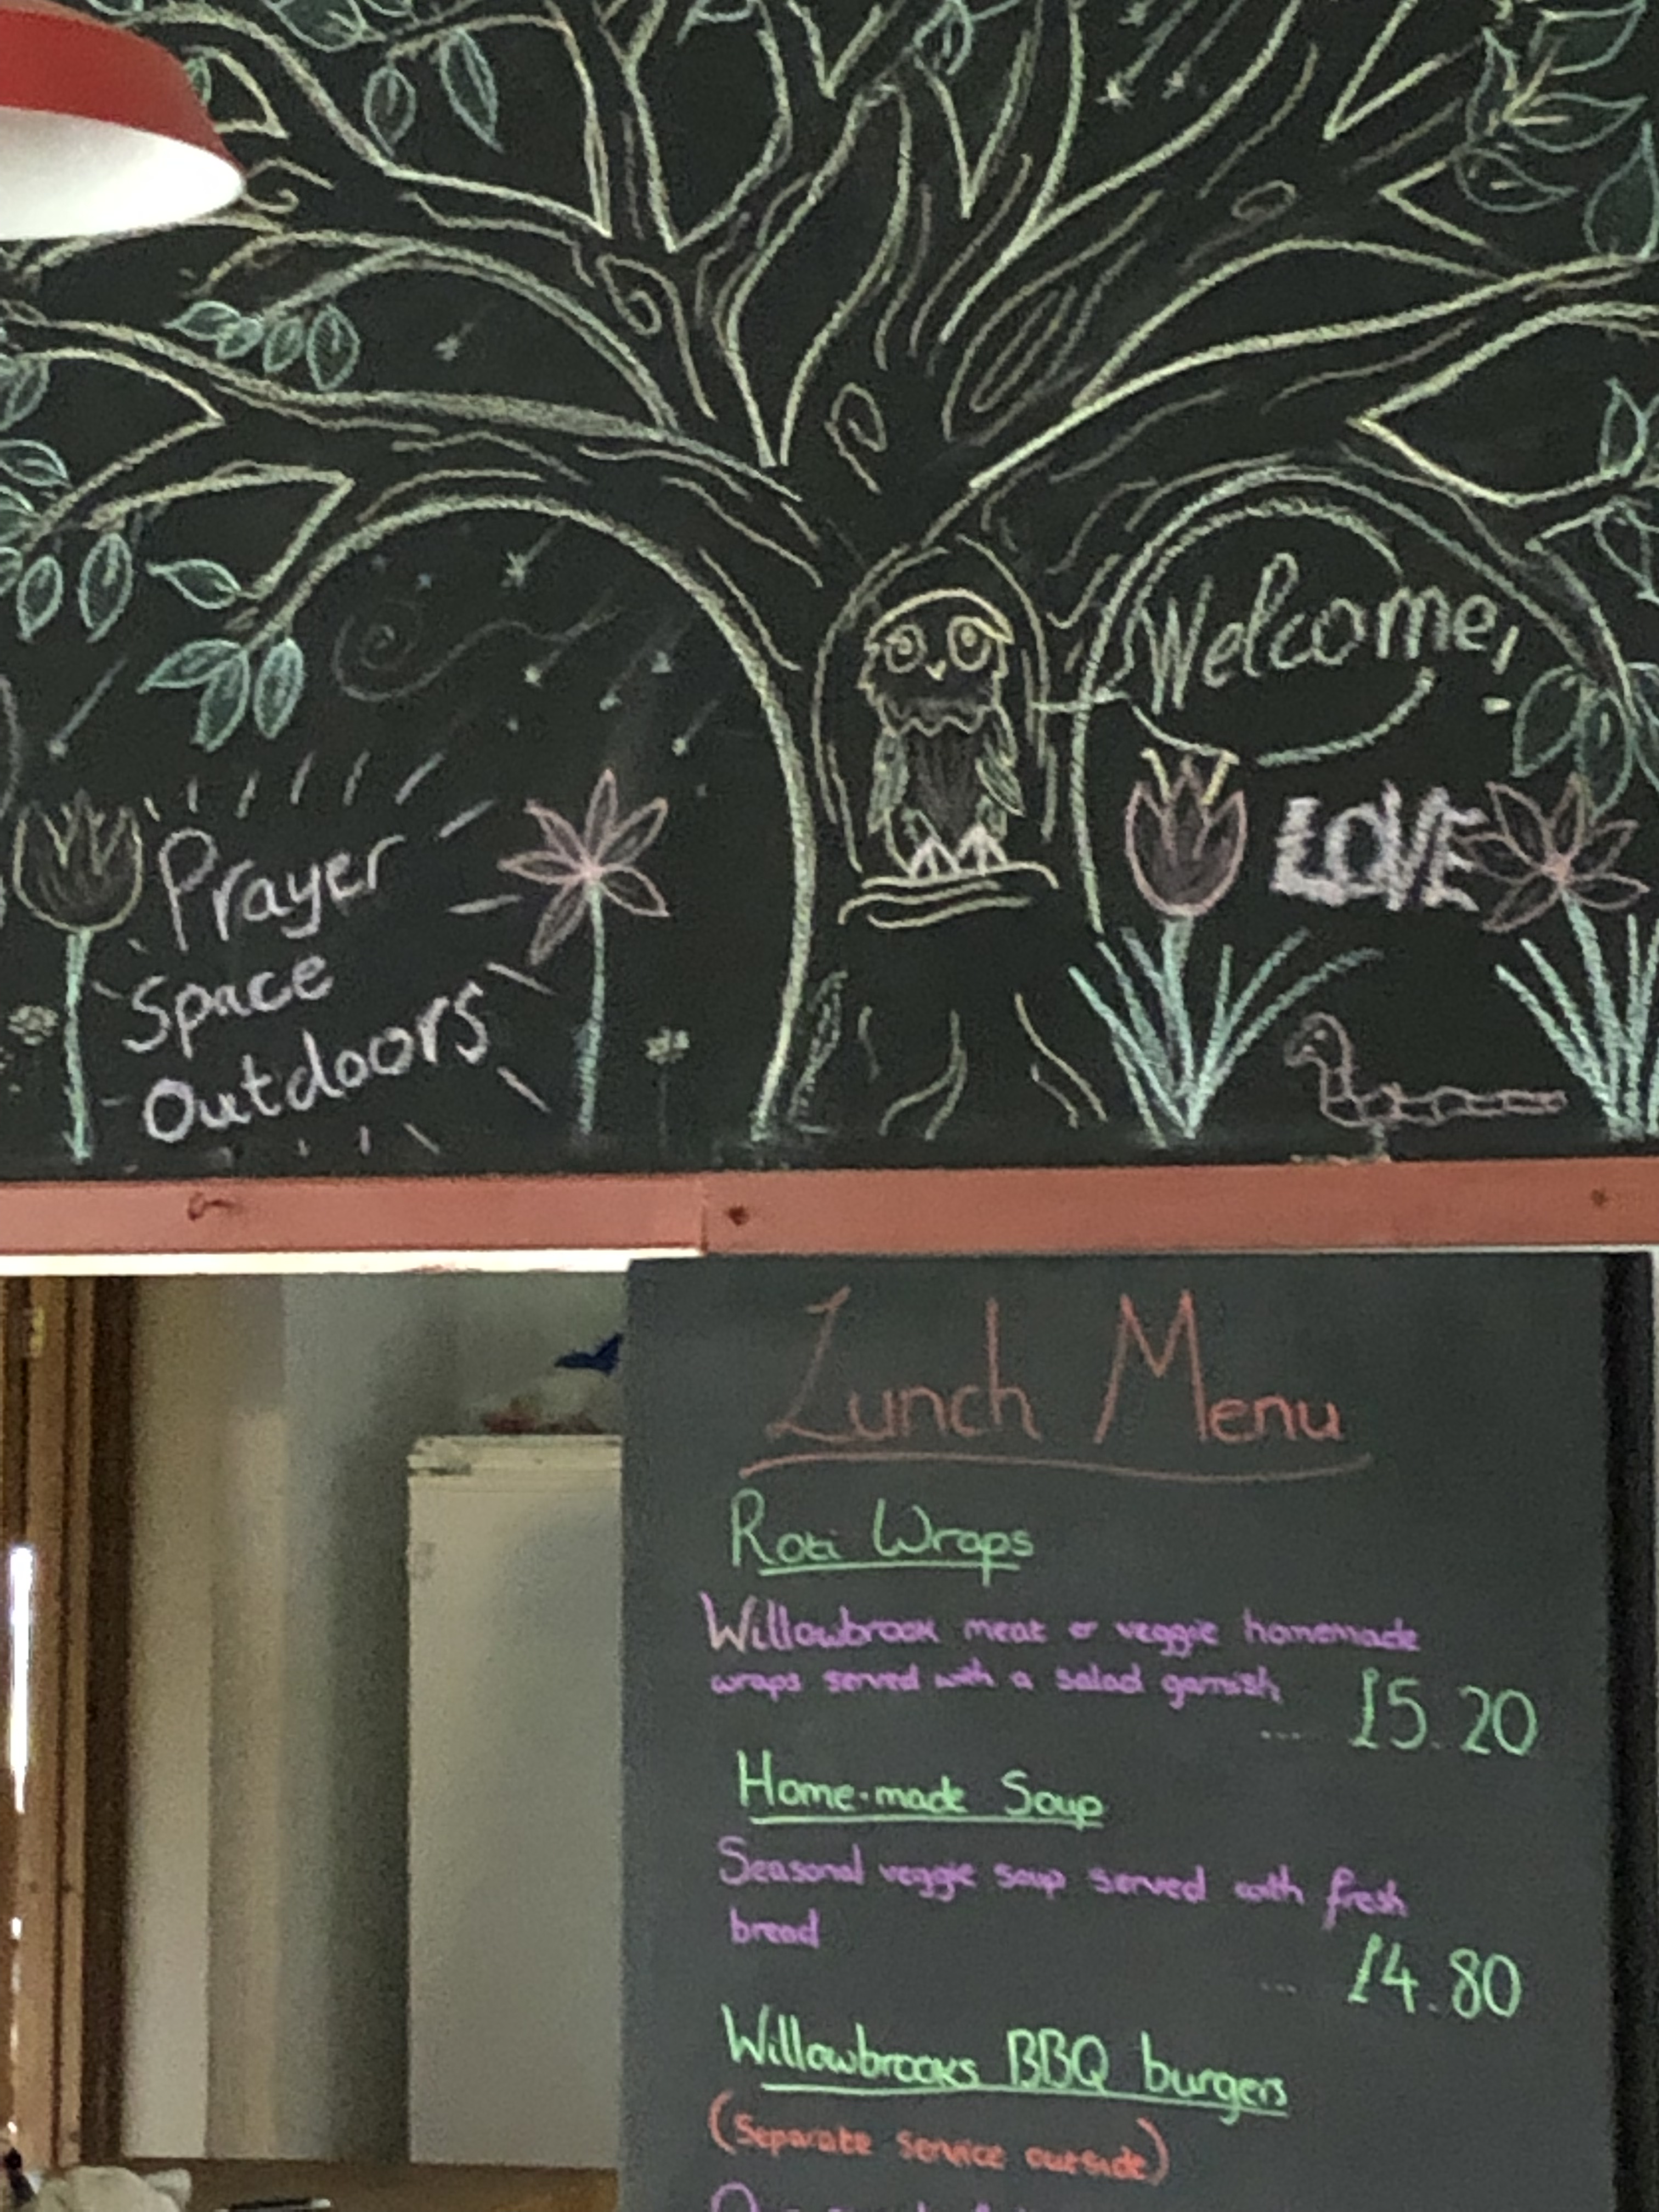 Welcome,
LOVE
Prayer
Space
Outdoors
Lunch Menu
Roti Wraps
Willowbrook meat or veggie homemade
wraps served with a salad garnish
.... £5.20
Home-made Soup
Seasonal veggie soup served with fresh
bread
... £4.80
Willowbrooks BBQ burgers
(Separate service outside)